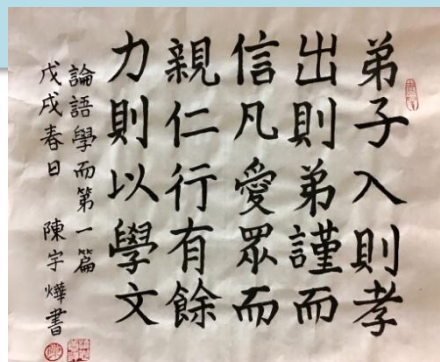 弟子入則孝
出則弟謹而
信凡愛眾而
親仁行有餘
力則以學文
論語學而第一篇
戊戌春日 陳宇燁書